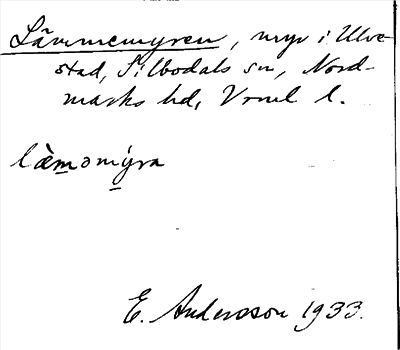 Lävmemyren, myr i Ulve-
stad, Silbodals sn, Nord-
marks hd, Vrml l.
læ̀mǝmýra
E. Andersson 1933.